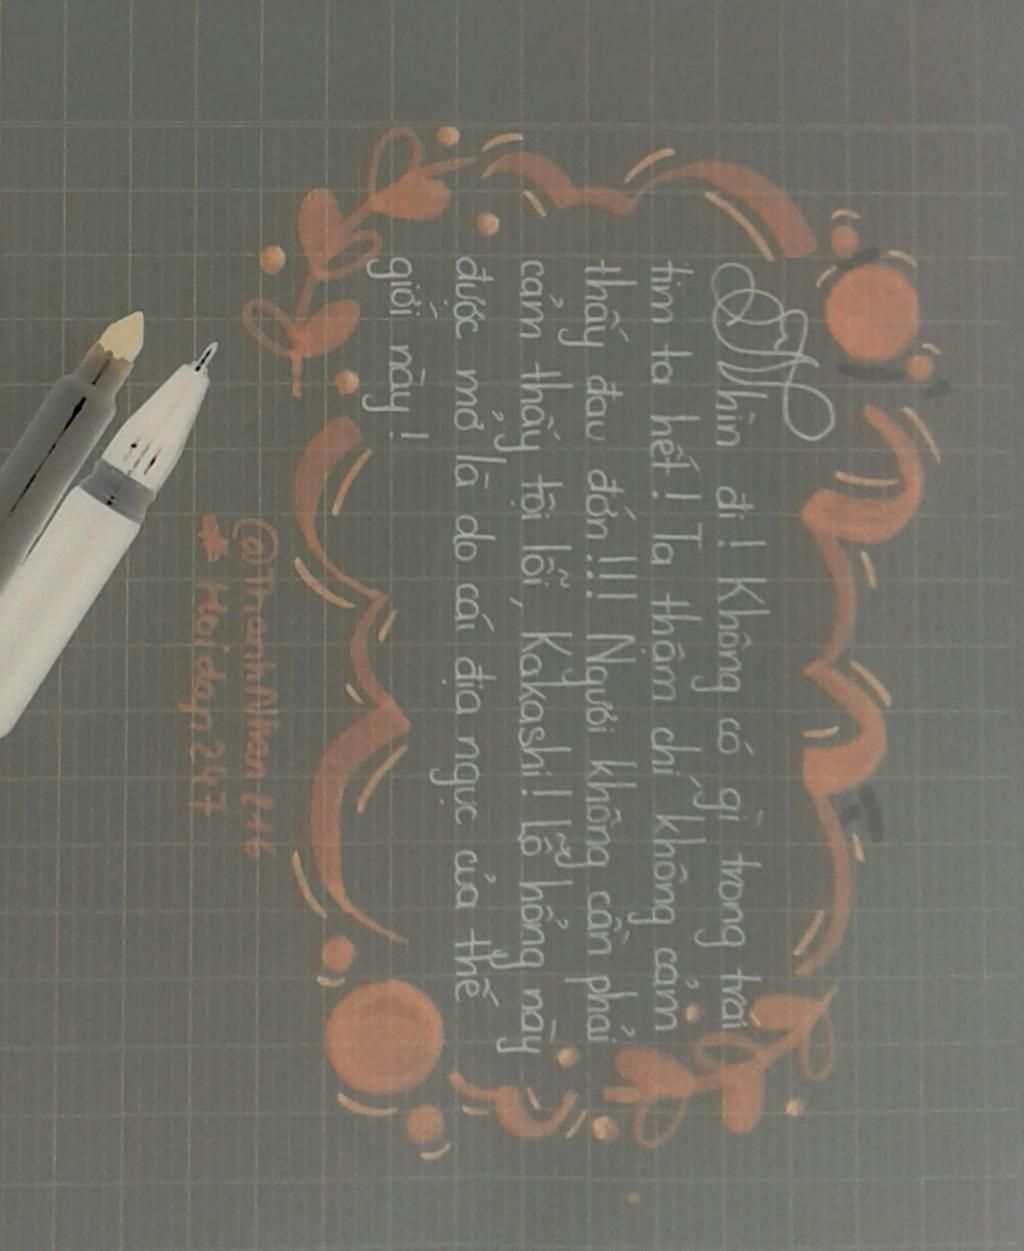 Nhìn đi! Không có gì trong trái
tim ta hết! Ta thậm chí không cảm
thấy đau đớn!!! Ngươi không cần phải
cảm thấy tội lỗi, Kakashi! Lỗ hổng này
được mở là do cái địa ngục của thế
giới này!
@ThanhNhan
Hoidap247